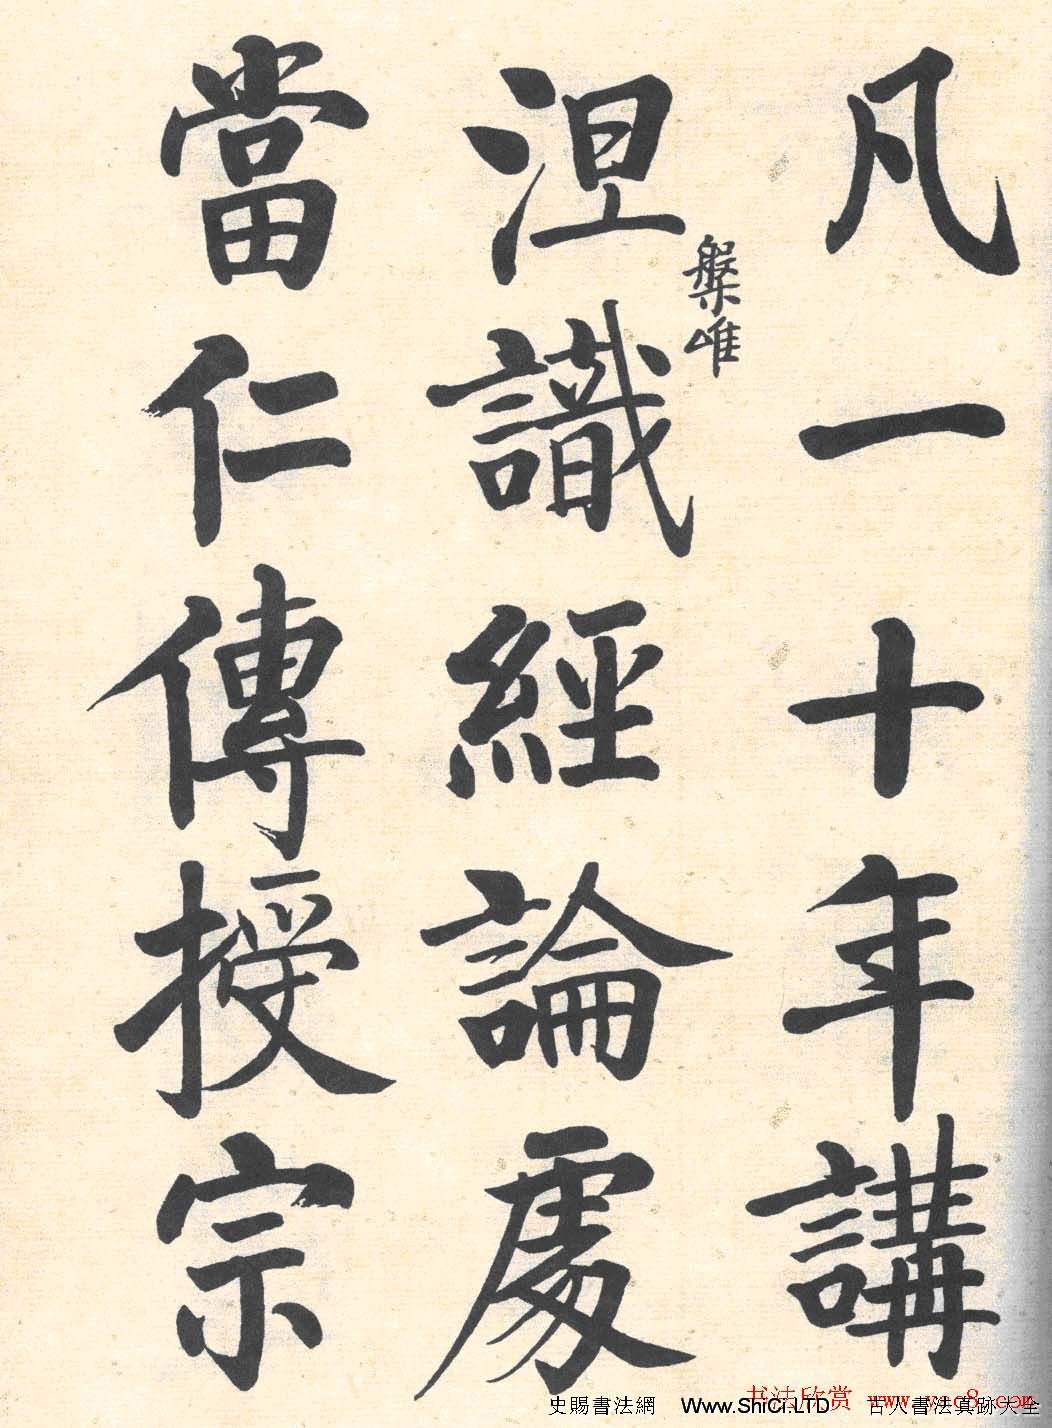 凡一十年講
涅槃唯識經論處
當仁傳授宗
书法欣赏 www.yac8.com
史賜書法網 Www.ShiCi.LTD 古人書法真跡大全